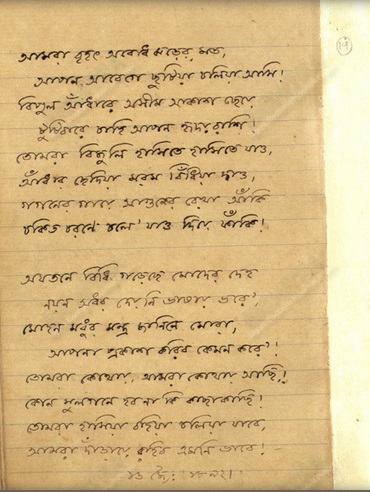 আমরা বৃহৎ অবোধ ঝড়ের মত,
আপন আবেগে ছুটিয়া চলিয়া আসি!
বিপুল আঁধারে অসীম আকাশ ছেয়ে
টুটিবারে চাহি আপন হৃদয়রাশি!
তোমরা বিজুলি হাসিতে হাসিতে চাও,
আঁধার ছেদিয়া মরম বিঁধিয়া দাও,
গগনের গায়ে আগুনের রেখা আঁকি
চকিত চরণে চলে' যাও দিয়ে ফাঁকি!
অযতনে বিধি গড়েছে মোদের দেহ
নয়ন অধর দেয়নি ভাষায় ভরে',
মোহন মধুর মন্ত্র জানিনে মোরা,
আপনা প্রকাশ করিব কেমন করে'!
তোমরা কোথায়, আমরা কোথায় আছি!
কোন সুলগনে হব না কি কাছাকাছি!
তোমরা হাসিয়া বহিয়া চলিয়া যাবে,
আমরা দাঁড়ায়ে রহিব এমনি ভাবে!